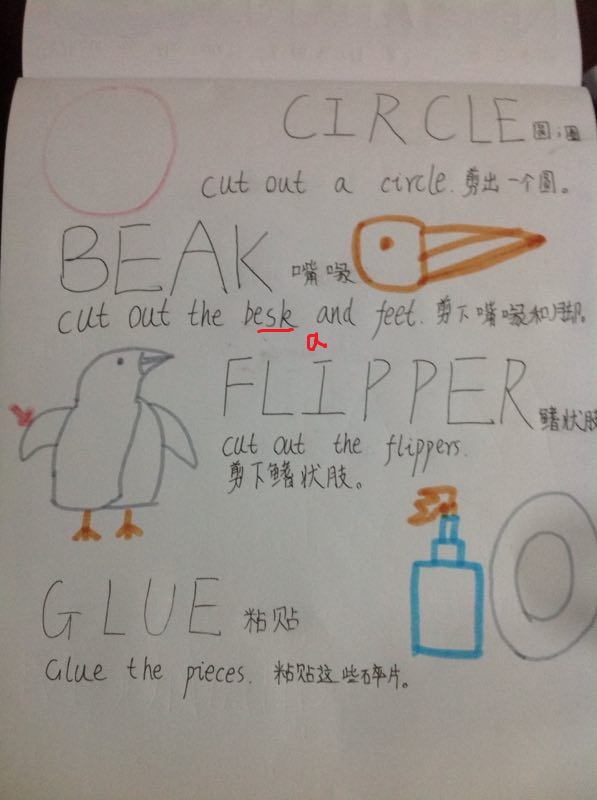 CIRCLE 圆;圈
cut out a circle. 剪出一个圆。
BEAK 嘴喙
cut out the besk and feet. 剪下嘴喙和脚。
a
FLIPPER 鳍状肢
cut out the flippers.
剪下鳍状肢。
GLUE 粘贴
Glue the pieces. 粘贴这些碎片。